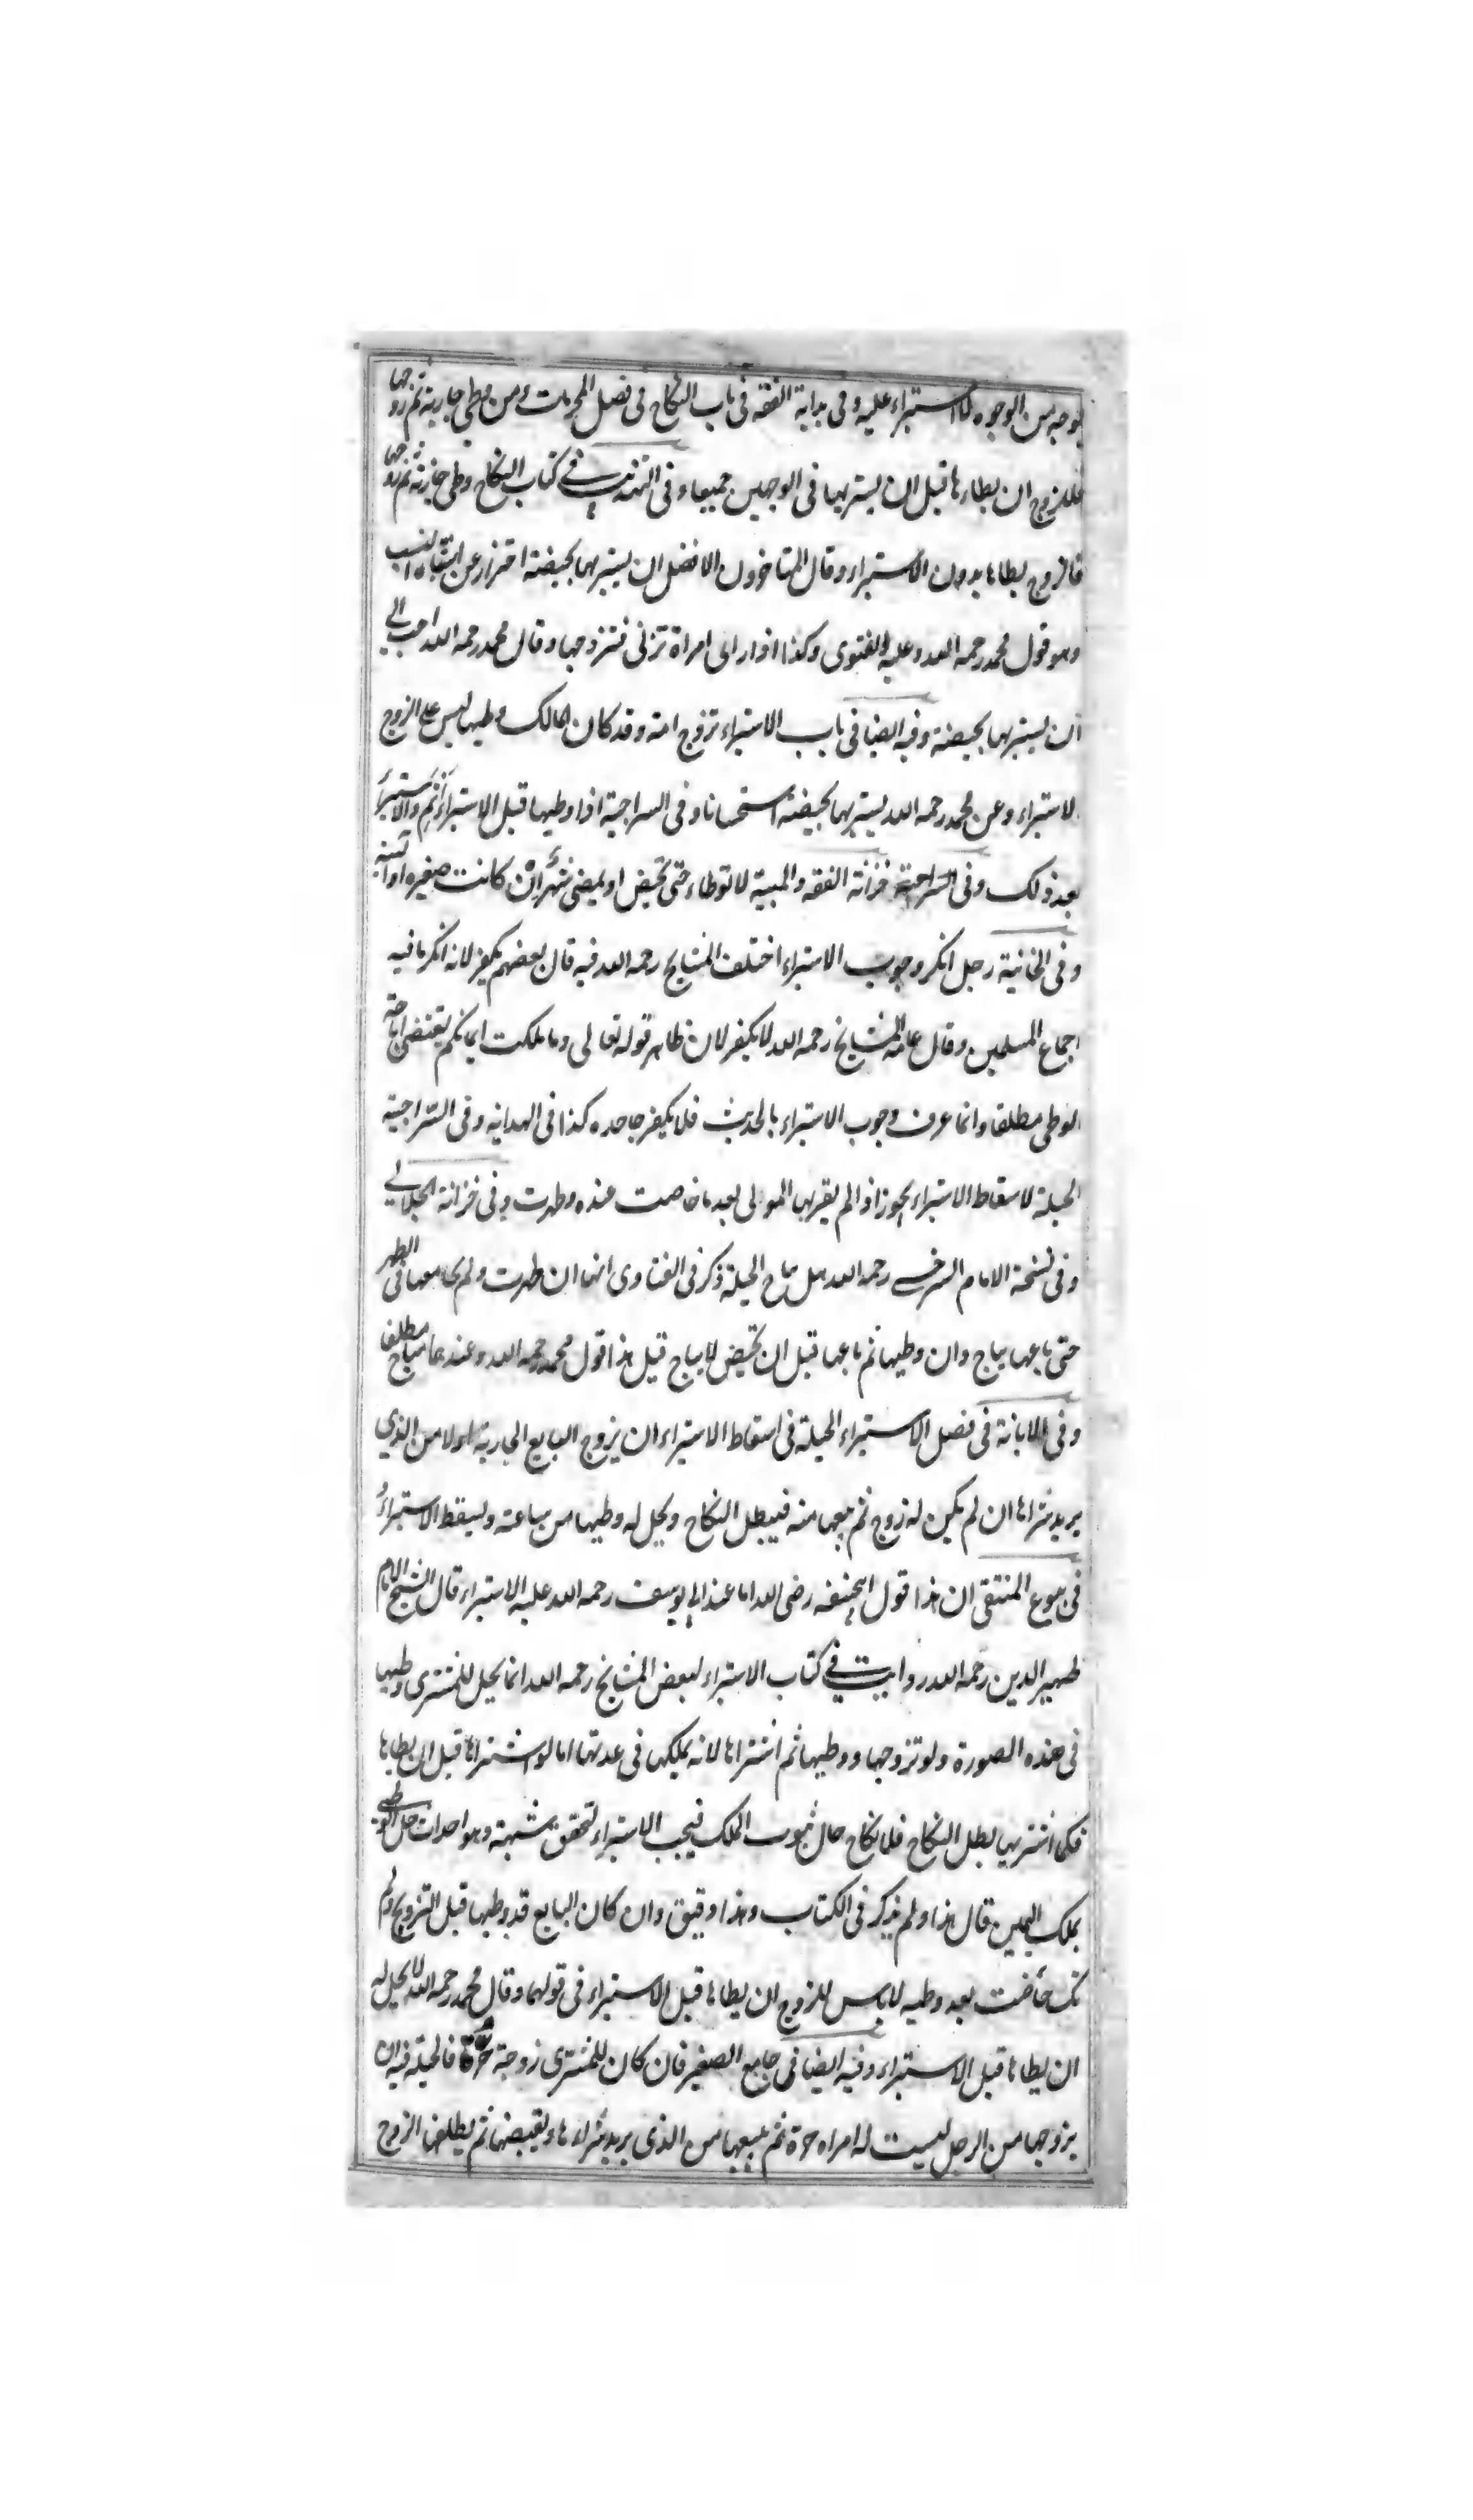 بوجه من الوجوه لا استبراء عليه وفى بداية الفقه فى باب النكاح فى فصل المحرمات ومن وطى جارية ثم زوجها
فللزوج ان يطاءها قبل ان يستبريها فى الوجهين جميعا وفى التهذيب في كتاب النكاح وطى جاريته ثم زوجها
فالزوج يطاها بدون الاستبراء وقال المتاخرون الافضل ان يستبريها بحيضة احترازا عن اشتباه النسب
وهو قول محمد رحمه الله وعليه الفتوى وكذا اذا راى امراة تزنى فتزوجها وقال محمد رحمه الله احب الي
ان يستبريها بحيضة وفيه ايضا فى باب الاستبراء تزوج امة وقد كان المالك وطيها ليس على الزوج
الاستبراء وعن محمد رحمه الله يستبريها بحيضة استحسانا وفى السراجية اذا وطيها قبل الاستبراء اثم ولا استبراء
بعد ذلك وفى السراجية خزانة الفقه والمسبية لا توطاء حتى تحيض او يمضى شهر ان كانت صغيرة او آيسة
وفى الخانية رجل انكر وجوب الاستبراء اختلف المشايخ رحمه الله فيه قال بعضهم يكفر لانه انكر ما فيه
اجماع المسلمين وقال عامة المشايخ رحمه الله لا يكفر لان ظاهر قوله تعالى وما ملكت ايمانكم يقتضى اباحة
الوطى مطلقا وانما عرف وجوب الاستبراء بالحديث فلا يكفر جاحده كذا فى الهداية وفى السراجية
الحيلة لاسقاط الاستبراء يجوز اذا لم يقربها المولى بعد ما حاضت عنده وطهرت وفى خزانة
وفى نسخة الامام السرخسي رحمه الله هل يباح الحيلة ذكر فى الفتاوى انها ان طهرت ولم يجامعها فى الطهر
حتى باعها يباح وان وطيها ثم باعها قبل ان تحيض لا يباح قيل هذا قول محمد رحمه الله وعندهما يباح مطلقا
وفى الابانة فى فصل الاستبراء الحيلة فى اسقاط الاستبراء ان يزوج البايع الجارية اولا من الذي
يريد شراها ان لم يكن له زوج ثم يبيعها منه فيبطل النكاح ويحل له وطيها من ساعته ويسقط الاستبراء و
فى بيوع المنتقى ان هذا قول ابيحنيفه رضى الله اما عند ابى يوسف رحمه الله عليه الاستبراء قال الشيخ الامام
ظهير الدين رحمه الله رايت في كتاب الاستبراء لبعض المشايخ رحمه الله انما يحل للمشترى وطيها
فى هذه الصورة ولو تزوجها ووطيها ثم اشتراها لانه يملكها فى عدتها اما لو اشتراها قبل ان يطاها
فكما اشتريها يبطل النكاح فلا نكاح حال ثبوت الملك فيجب الاستبراء لتحقق شبهته وهو احداث حل الوطي
بملك اليمين قال هذا ولم يذكر فى الكتاب وهذا دقيق وان كان البايع قد وطيها قبل التزويج ولم
تك حاضت بعد وطيه لا باس للزوج ان يطاها قبل الاستبراء فى قولهما وقال محمد رحمه الله لا يحل له
ان يطاها قبل الاستبراء وفيه ايضا فى جامع الصغير فان كان للمشترى زوجة حرة فالحيلة فيه ان
يزوجها من الرجل ليست له امراه حرة ثم يبيعها من الذى يريد شراءها ويقبضها ثم يطلقها الزوج